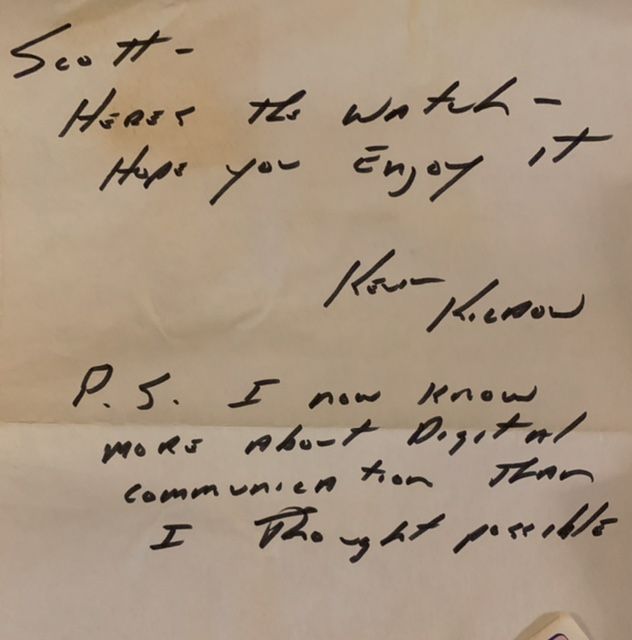 Scott -
HERES the watch -
Hope you Enjoy it
Kevin
P.S. I now know
more about Digital
communication Than
I Thought possible